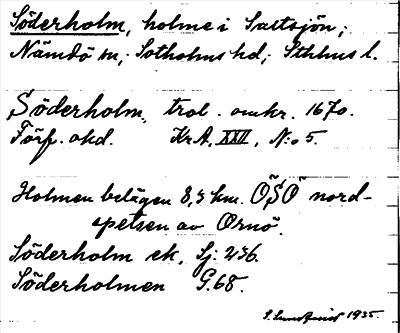 Söderholm, holme i Saltsjön;
Nämdö sn, Sotholms hd, Sthlms l.
Söderholm, trol. omkr. 1670.
Förf. okd. Kr. A, XXII, N:o 5.
Holmen belägen 8,5 km. ÖSÖ nord-
spetsen av Ornö.
Söderholm ek. Sj: 236.
Söderholmen G. 68.
1935.